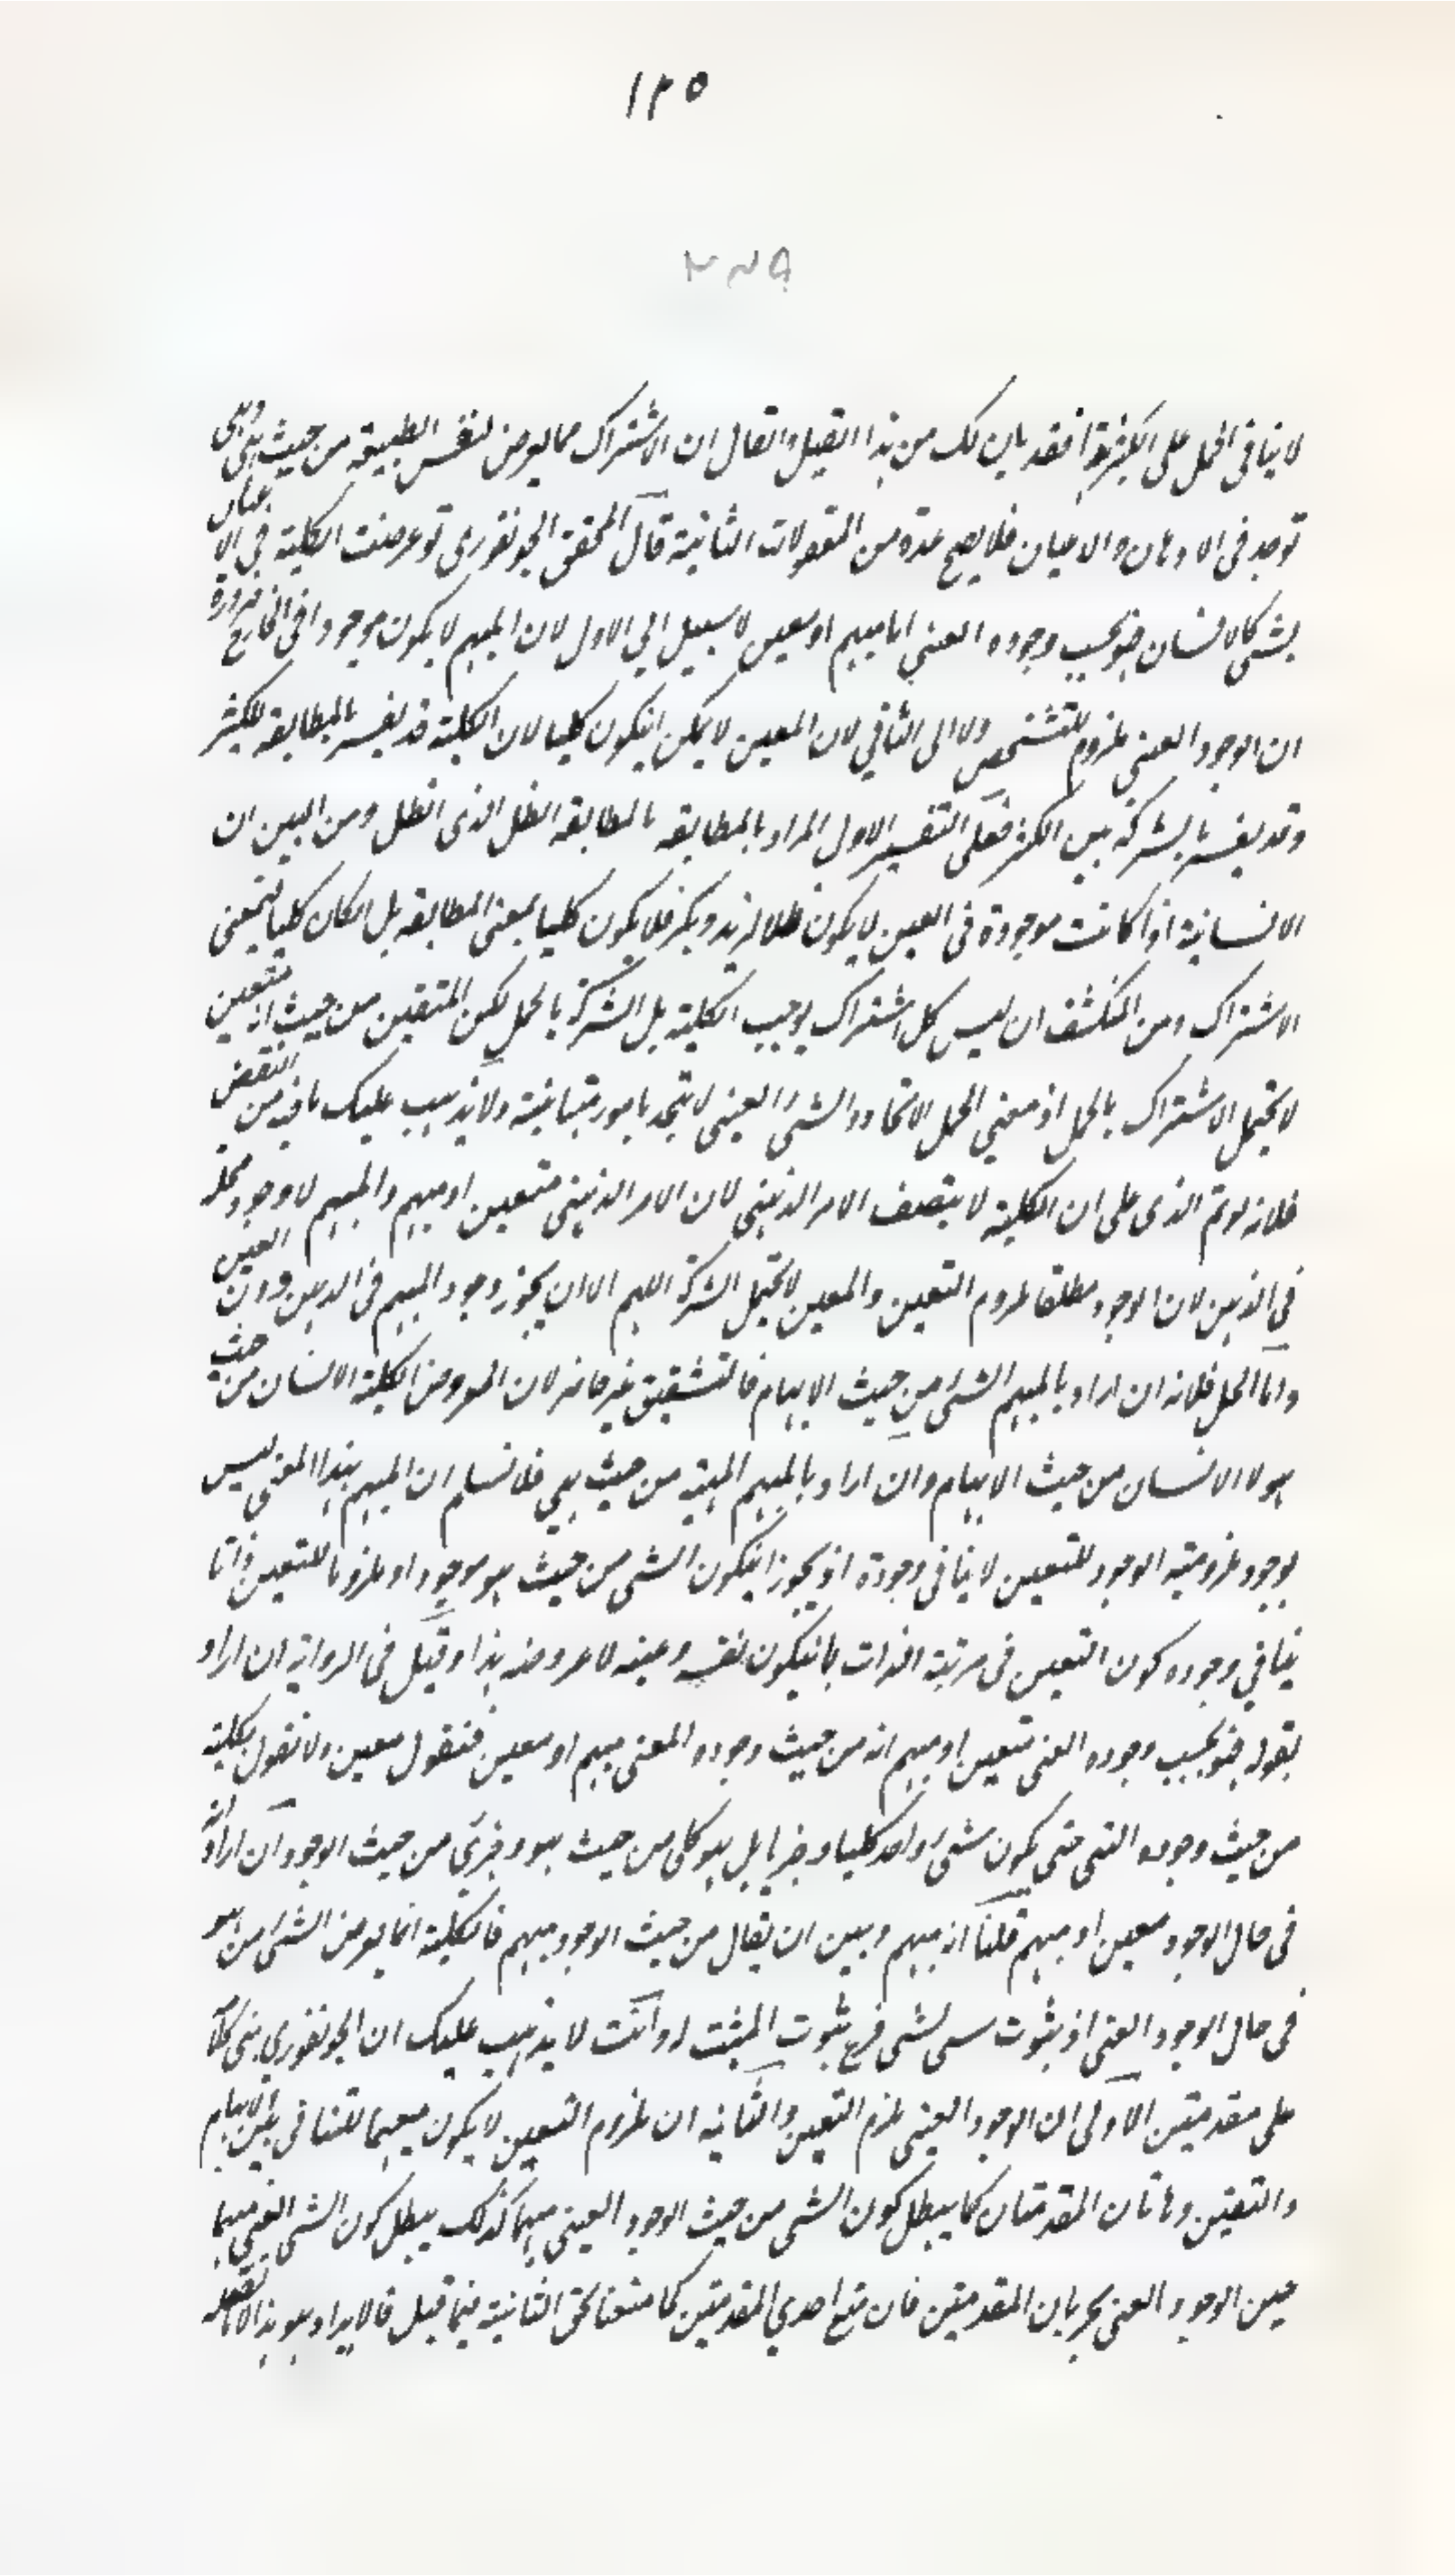 ١٢٥
لا ينافى الحمل على الكثيرين فقد بان لك من هذا القيل والقال ان الاشتراك مما يعرض لنفس الطبيعة من حيث هى وهى
توجد فى الاذهان والاعيان فلا يصح عده من المعقولات الثانية قال المحقق الجونفورى لو عرضت الكلية فى الاعيان
بشى كالانسان فهو بحسب وجوده العينى اما مبهم او معين لا سبيل الى الاول لان المبهم لا يكون موجودا فى الخارج ضرورة
ان الوجود العينى ملزوم للتشخص ولا الى الثانى لان المعين لا يمكن انيكون كليا لان الكلية قد يفسر بالمطابقة للكثير
وقد يفسر بالشركة بين الكثير فعلى التفسير الاول المراد بالمطابقة مطابقة الظل لذى الظل ومن البين ان
الانسانية اذا كانت موجودة فى العين لا يكون ظلا لزيد وبكر فلا يكون كليا بمعنى المطابقة بل لكان كليا بمعنى
الاشتراك ومن المنكشف ان ليس كل اشتراك يوجب الكلية بل الشركة بالحمل لكن المتعين من حيث انه متعين
لا يحتمل الاشتراك بالحمل اذ معنى الحمل الاتحاد والشئ العينى لا يتحد بامور متباينة ولا يذهب عليك ما فيه من النقض
فلانه لو تم لدل على ان الكلية لا يتصف الامر الذهنى لان الامر الذهنى متعين او مبهم والمبهم لا وجود له
فى الذهن لان الوجود مطلقا ملزوم التعين والمعين لا يحتمل الشركة اللهم الا ان يجوز وجود المبهم فى الذهن دون العين
واما الحل فلانه ان اراد بالمبهم الشئ من حيث الابهام فالتشقيق غير حاصر لان المعروض الكلية الانسان من حيث
هو لا الانسان من حيث الابهام وان اراد بالمبهم المهية من حيث هى فلا نسلم ان المبهم بهذا المعنى ليس
بموجود ملزومية الوجود للتعين لا ينافى وجودة اذ يجوز انيكون الشى من حيث هو موجودا وملزوما للتعين وانما
ينافى وجوده كون التعين فى مرتبة الذات بانيكون نفسه وعينه لا عروضه هذا وقيل فى الرد انه ان اراد
بقوله فهو بحسب وجوده العينى متعين او مبهم انه من حيث وجوده العينى مبهم او معين فنقول معين ولا نقول بكلية
من حيث وجوده العينى حتى يكون شئ واحد كليا وجزئيا بل هو كلى من حيث هو وجزئى من حيث الوجود وان اراد انه
فى حال الوجود معين او مبهم قلنا انه مبهم وبين ان يقال من حيث الوجود مبهم فالكلية انما يعرض الشئ من هو
فى حال الوجود العينى اذ ثبوت شى لشى فرع ثبوت المثبت له وانت لا يذهب عليك ان الجونفورى بنى كلامه
على مقدمتين الاولى ان الوجود العينى ملزم التعين والثانية ان ملزوم التعين لا يكون مبهما للتنافى بين الابهام
والتعين وهاتان المقدمتان كما يبطل كون الشى من حيث الوجود العينى مبهما كذلك يبطل كون الشى العينى مبهما
حين الوجود العينى بجريان المقدمتين فان منع احدى المقدمتين كما منعنا نحن الثانية فيما قبل فالايراد هو هذا لا ما نقله